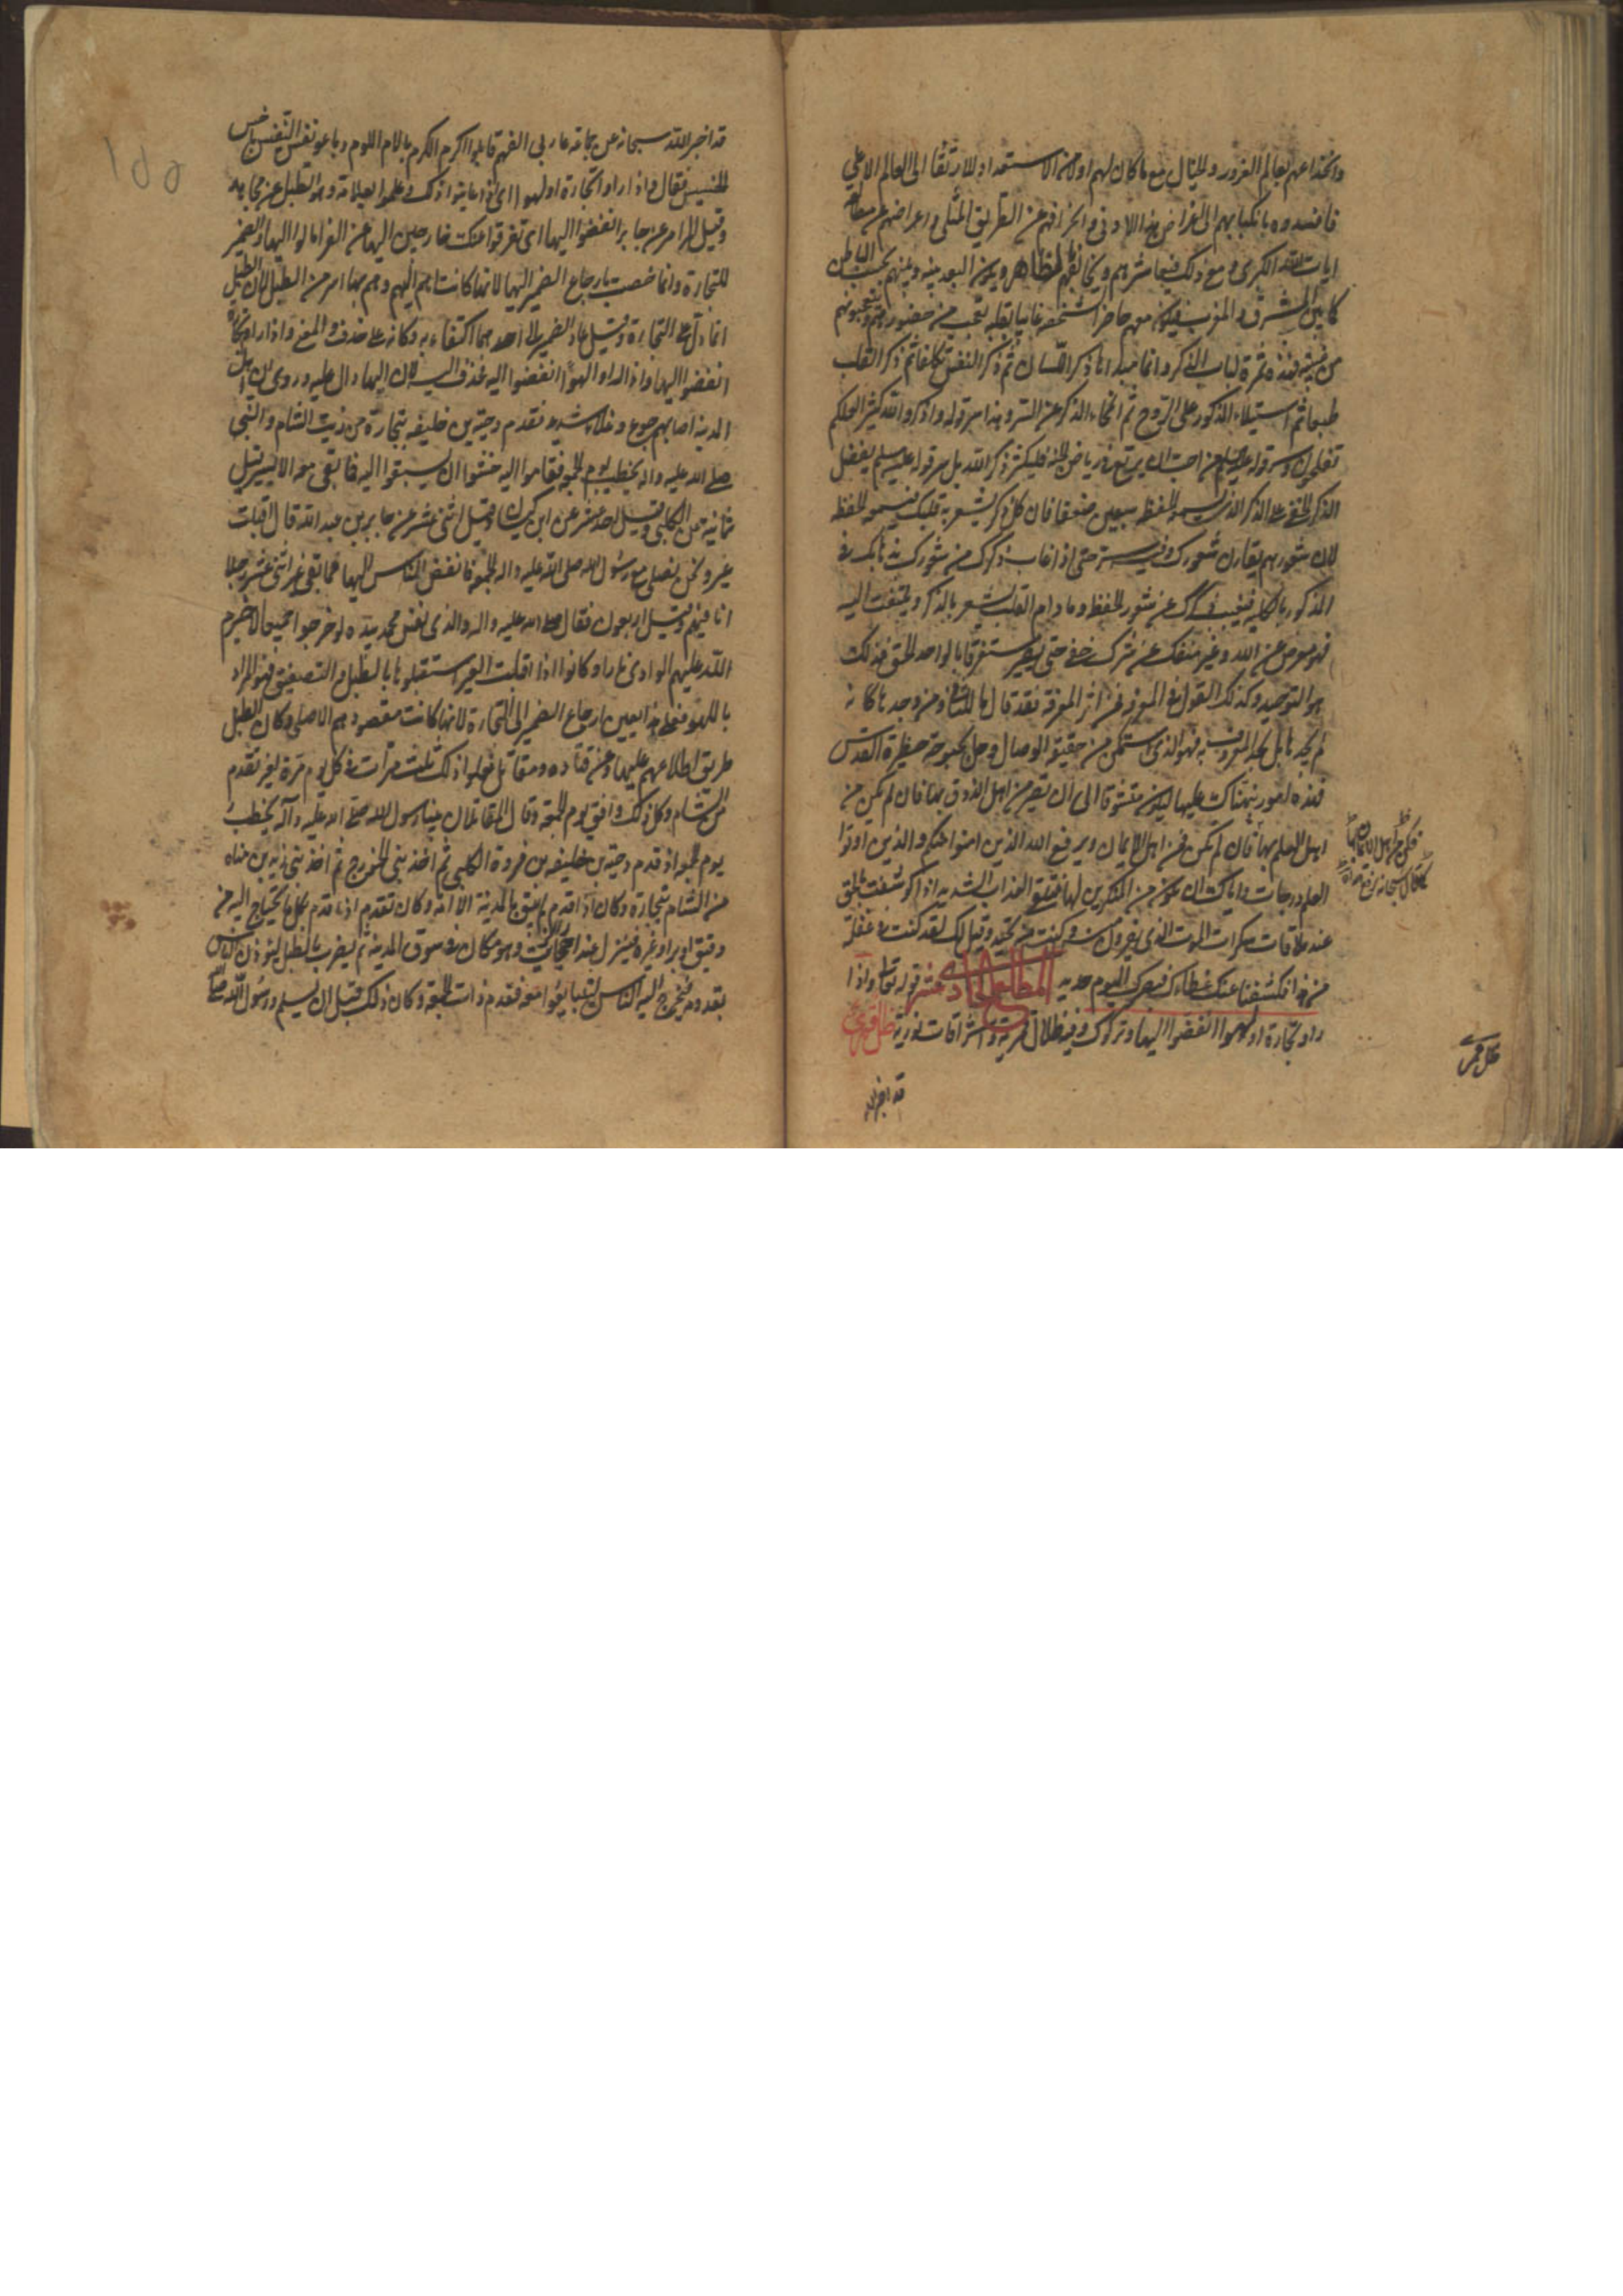 وانخداعهم بعالم الغرور والخيال مع ما كان لهم اولا من الاستعداد للارتقاء الى العالم الاعلى
فافسدوه بانكبابهم الى اغراض هذا الادنى وانحرافهم عن الطريق المثلى واعراضهم عن مطالعة
ايات الله الكبرى ومع ذلك فيعاشرهم ويخالطهم بالظاهر ويكون البعد بينه وبينهم بحسب الباطن
كما بين المشرق والمغرب فيكون معهم حاضرا بشخصه غايبا بقلبه يتعجب من حضورهم ويتعجبون
من غيبته فهذه ثمرة لباب الذكر وانما مبداها ذكر اللسان ثم ذكر النفس تكلفا ثم ذكر القلب
طبعا ثم استيلاء المذكور على الروح ثم انمحاء الذكر عن السر وهذا سر قوله واذكروا الله كثيرا لعلكم
تفلحون وسر قوله عليه السلم من احب ان يرتع في رياض الجنة فليكثر ذكر الله بل سر قوله عليه السلم يفضل
الذكر الخفي على الذكر الذي يسمعه الحفظة سبعين ضعفا فان كل ذكر يشعر به قلبك فيسمعه الحفظة
لان شعورهم يقارن شعورك وفيه سر حتى اذا غاب ذكرك من شعورك بذهابك في
المذكور بالكلية فيغيب ذكرك عن شعور الحفظة وما دام القلب يشعر بالذكر ويلتفت اليه
فهو معرض عن الله وغير منفك عن شرك خفي حتى يصير مستغرقا بالواحد الحق فذلك
هو التوحيد وكذلك القول في المعرفة فمن اثر المعرفة فقد قال بالثاني ومن وجدها كانه
لم يجدها بل يجد المعروف به فهو الذي استمكن من حقيقة الوصال وحل بحبوحة حظيرة القدس
فهذه امور نبهناك عليها ليكون متشوقا الى ان تصير من اهل الذوق بها فان لم يكن من
اهل العلم بها فان لم تكن فمن اهل الايمان ويرفع الله الذين امنوا منكم والذين اوتوا
العلم درجات واياك ان تكون من المنكرين لها فتلقى العذاب الشديد اذا كوشفت بالحق
عند ملاقات سكرات الموت الذي تفرون منه وكنت منه تحيد وقيل لك لقد كنت في غفلة
من هذا فكشفنا عنك غطاءك فبصرك اليوم حديد المطلع الحادي عشر قوله تعالى واذا
راوا تجارة او لهوا انفضوا اليها وتركوك وفيه ظلال فرشية واشراقات نورية ظل فرشي
قد اخبر الله
قد اخبر الله سبحانه عن جماعة قابلوا اكرم الكرم بالام اللوم وباعوا نفس النفيس باخس
الخسيس فقال واذا راوا تجارة او لهوا اي اذا عاينوا ذلك وعلموا بعلامة وهو الطبل عن مجاهد
وقيل المزامر عن جابر انفضوا اليها اي تفرقوا عنك خارجين اليها عن الفراء مالوا اليها والضمير
للتجارة وانما خصت بارجاع الضمير اليها لانها كانت اهم اليهم وهم بها اسر من الطبل لان الطبل
انما دل على التجارة وقيل عاد الضمير الى احدهما اكتفاء به وكانه على حذف والمعنى واذا راوا تجارة
انفضوا اليها واذا راوا لهوا انفضوا اليه فحذف اليه لان اليها دال عليه وروي ان اهل
المدينة اصابهم جوع وغلاء شديد فقدم دحية بن خليفه بتجارة من زيت الشام والنبي
صلى الله عليه واله يخطب يوم الجمعة فقاموا اليه خشوا ان يسبقوا اليه فما بقي معه الا يسير قيل
ثمانية عن الكلبي وقيل احد عشر عن ابن كيسان وقيل اثنى عشر عن جابر بن عبد الله قال اقبلت
عير ونحن نصلي مع رسول الله صلى الله عليه واله الجمعة فانفض الناس اليها فما بقي غير اثنى عشر رجلا
انا فيهم وقيل اربعون فقال صلى الله عليه واله والذي نفس محمد بيده لو خرجوا جميعا لاضرم
الله عليهم الوادي نارا وكانوا اذا اقبلت العير استقبلوها بالطبل والتصفيق فهو المراد
باللهو فعلى هذا يتعين ارجاع الضمير الى التجارة لانها كانت مقصودهم الاصلي وكان الطبل
طريق اطلاعهم عليها وعن قتاده ومقاتل فعلوا ذلك ثلث مرات في كل يوم مرة لعير تقدم
من الشام وكل ذلك وافق يوم الجمعة وقال المقاتلان بينا رسول الله صلى الله عليه وآله يخطب
يوم الجمعة اذ قدم دحية بن خليفه بن فروة الكلبي ثم احد بني الخزرج ثم احد بني زيد بن مناه
من الشام بتجارة وكان اذا قدم لم يبق بالمدينة الا اتته وكان تقدم اذا قدم بكل ما يحتاج اليه من
دقيق او بر او غيره فينزل عند احجار الزيت وهو مكان في سوق المدينة ثم يضرب بالطبل ليؤذن الناس
بقدومه فيخرج اليه الناس ليتبايعوا معه فقدم ذات جمعة وكان ذلك قبل ان يسلم ورسول الله صلى